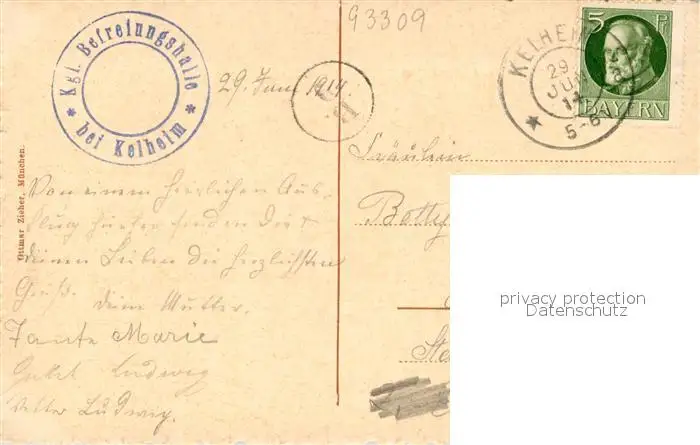 93309
Kgl. Befreiungshalle
* bei Kelheim *
29. Juni 1914.
KELHEIM
29
JUN
14
5-6
5 Pf
BAYERN
Fräulein
Betty
Ottmar Zieher, München.
Von einem herzlichen Aus-
flug hierher senden Dir &
deinen Lieben die herzlichsten
Grüße. deine Mutter.
Tante Marie
Ludwig
Vetter Ludwig.
privacy protection
Datenschutz